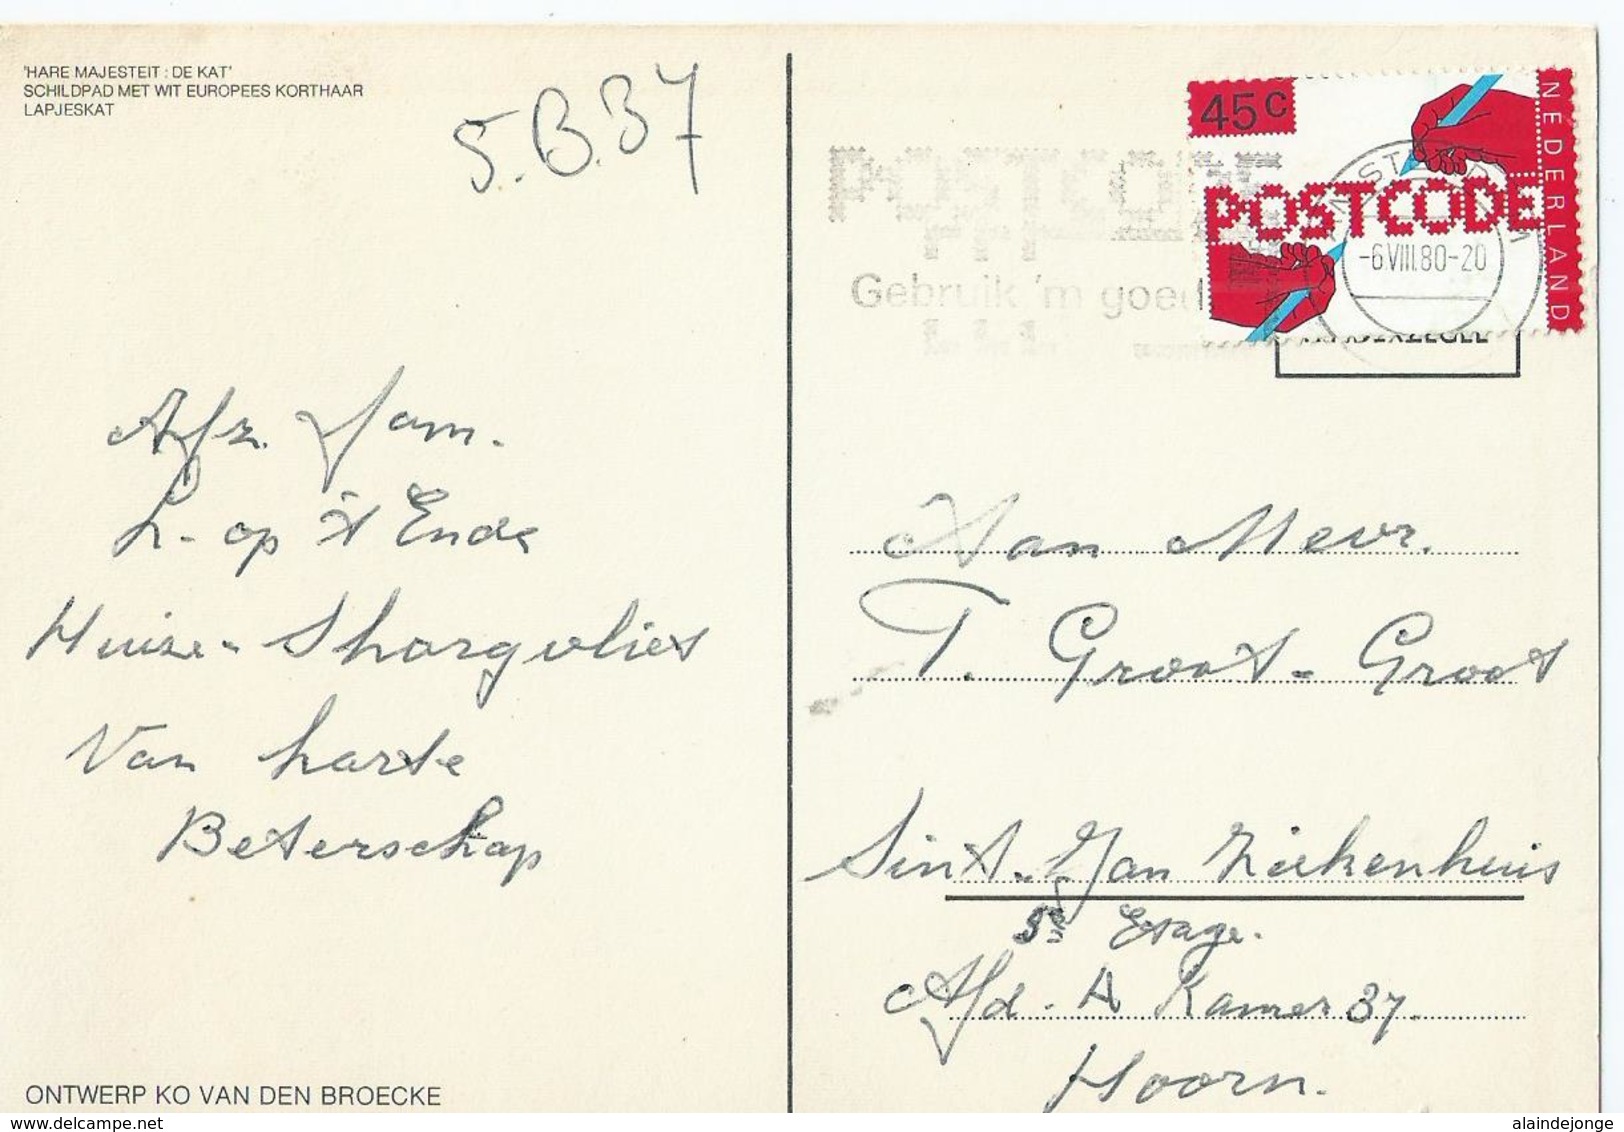 'HARE MAJESTEIT : DE KAT'
SCHILDPAD MET WIT EUROPEES KORTHAAR
LAPJESKAT
5.B.37
Afz. fam.
L. op 't Ende
Huize-Thorgvliet
Van harte
Beterschap
ONTWERP KO VAN DEN BROECKE
45c
NEDERLAND
POSTCODE
-6.VIII.80-20
POSTCODE
Gebruik 'm goed
Aan Mevr.
T. Groot-Groot
Sint-Jan Ziekenhuis
5e Etage.
Afd. A Kamer 37.
Hoorn.
alaindejonge